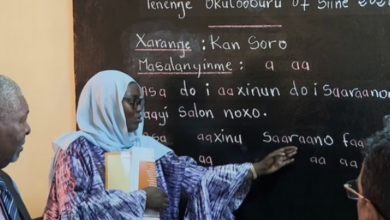 Tenenge Okulooburu
Xarange : Kan Soro
Masalanyinme : a aa
Asa do i aaxinun do i saaraano
Salon noxo.
aaxinu saaraano
aa aa aa